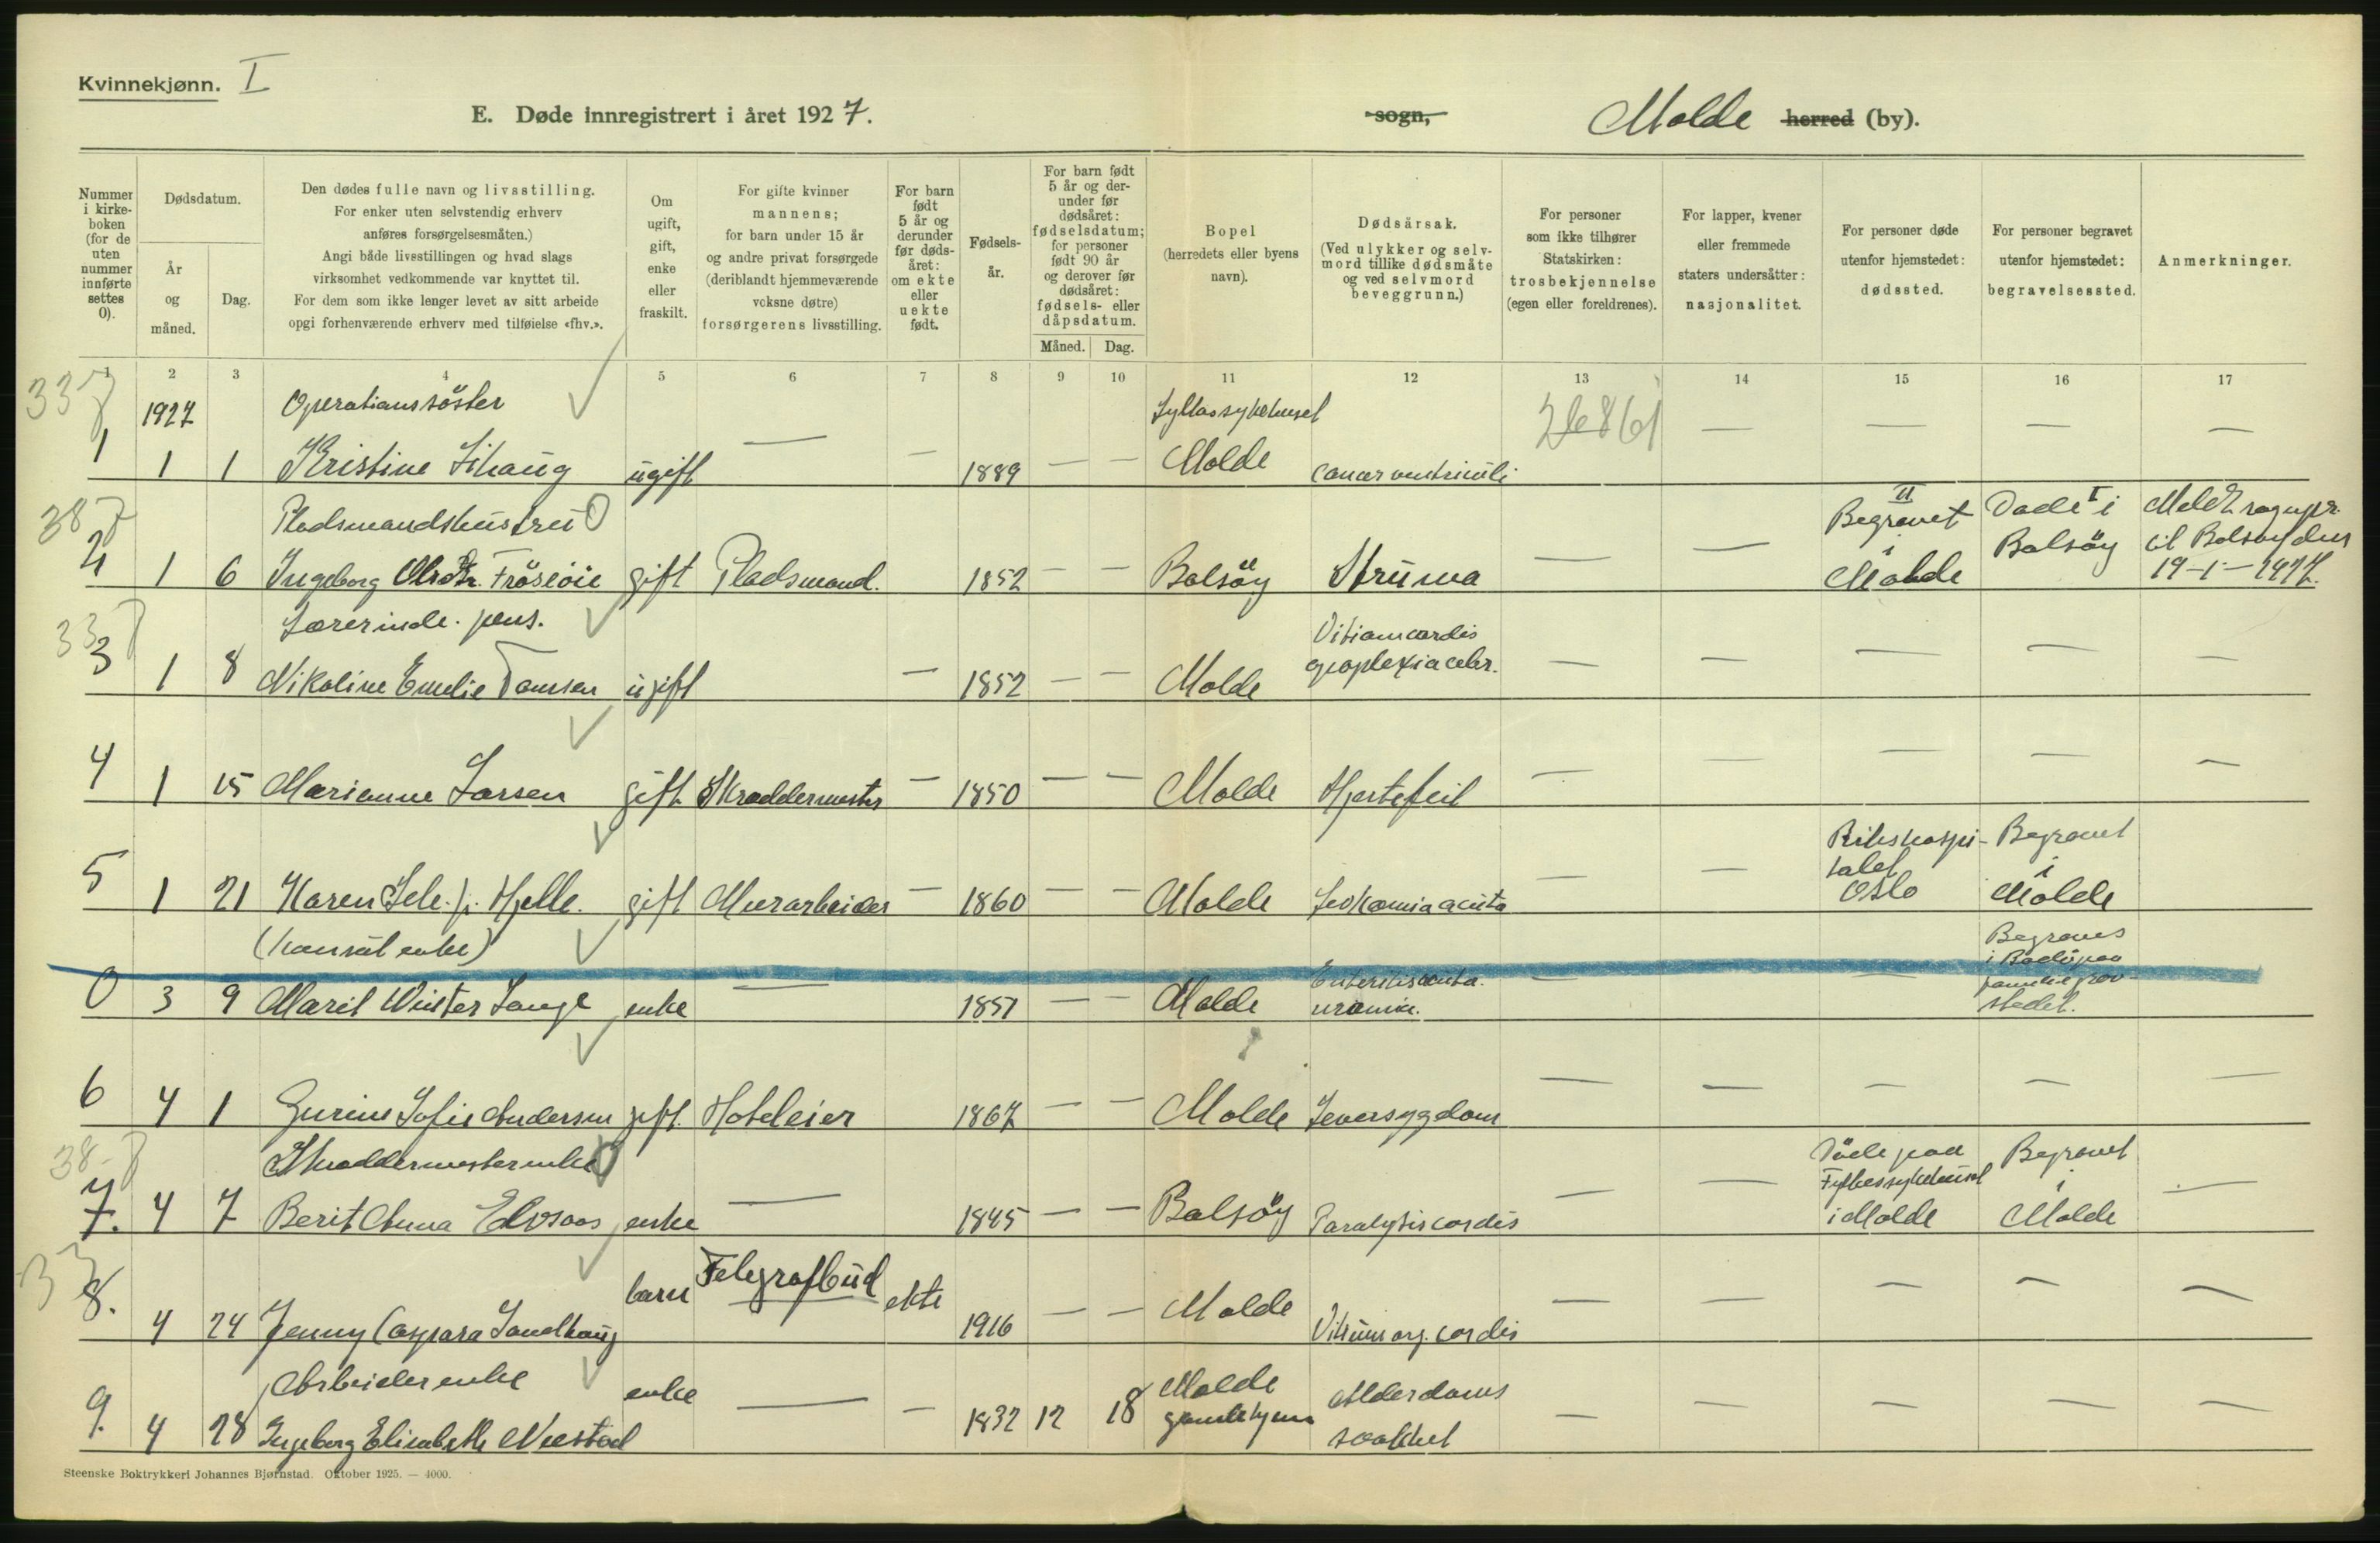 Kvinnekjønn. I
E. Døde innregistrert i året 1927. sogn, Molde herred (by).
Nummer i kirkeboken (for de uten nummer innførte settes 0).
Dødsdatum.
År og måned.
Dag.
Den dødes fulle navn og livsstilling.
For enker uten selvstendig erhverv anføres forsørgelsesmåten.)
Angi både livsstillingen og hvad slags virksomhet vedkommende var knyttet til.
For dem som ikke lenger levet av sitt arbeide opgi forhenværende erhverv med tilføielse «fhv.».
Om ugift, gift, enke eller fraskilt.
For gifte kvinner mannens; for barn under 15 år og andre privat forsørgede (deriblandt hjemmeværende voksne døtre) forsørgerens livsstilling.
For barn født 5 år og derunder før dødsåret: om ekte eller uekte født.
Fødselsår.
For barn født 5 år og derunder før dødsåret: fødselsdatum; for personer født 90 år og derover før dødsåret: fødsels- eller dåpsdatum.
Måned. Dag.
Bopel (herredets eller byens navn).
Dødsårsak.
(Ved ulykker og selvmord tillike dødsmåte og ved selvmord beveggrunn.)
For personer som ikke tilhører Statskirken: trosbekjennelse (egen eller foreldrenes).
For lapper, kvener eller fremmede staters undersåtter: nasjonalitet.
For personer døde utenfor hjemstedet: dødssted.
For personer begravet utenfor hjemstedet: begravelsessted.
Anmerkninger.
1 2 3 4 5 6 7 8 9 10 11 12 13 14 15 16 17
337 1927 Operationssöster Fylkessykehuset 26861
1 1 1 Kristine Lihaug ugift — — 1889 — — Molde cancer ventriculi — — — —
387 Pladsmandshustru Begravet II Döde I i
2 1 6 Ingeborg Olsdtr. Fröseöie gift Pladsmand. 1852 — — Bolsöy Struma — — i Molde Bolsöy til Bolsöy den 19-1-1927.
337 Lærerinde. pens. Vitium cordis
3 1 8 Nikoline Emelie Tomsen ugift — 1852 — — Molde apoplexia cebr. — — — — —
4 1 15 Marianne Larsen gift Skræddermester — 1850 — — Molde Hjertefeil — — — — —
Rikshospi- Begravet
5 1 21 Karen Hjelle. gift Murarbeider — 1860 — — Molde Leukæmia acuta — — talet Oslo i Molde
(Konsul enke) Begraves
0 3 9 Marit Winter Lange enke — 1851 — — Molde Enteritis acuta. uræmia. — — i Bodö paa familiegrav-stedet.
6 4 1 Gurine Sofie Andersen gift. Hoteleier 1867 — — Molde Leversygdom — — — — —
38-7 Skræddermesterenke Döde paa Begravet
7. 4 7 Berit Anna Elvsaas enke — 1845 — — Bolsöy Paralysis cordis — — Fylkessykehuset i Molde i Molde —
33
8. 4 24 Jenny Caspara Sandhaug barn Telegrafbud ekte 1916 — — Molde Vitium org. cordis — — — — —
Arbeiderenke
9. 4 28 Ingeborg Elisabeth Nestöd enke — — 1832 12 18 Molde gamlehjem Alderdoms svakhet — — — — —
Steenske Boktrykkeri Johannes Bjørnstad. Oktober 1925. — 4000.